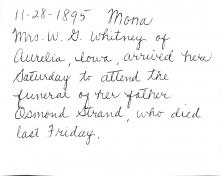 11-28-1895 Mona
Mrs. W. G. Whitney of
Aurelia, Iowa, arrived here
Saturday to attend the
funeral of her father
Osmond Strand, who died
last Friday.